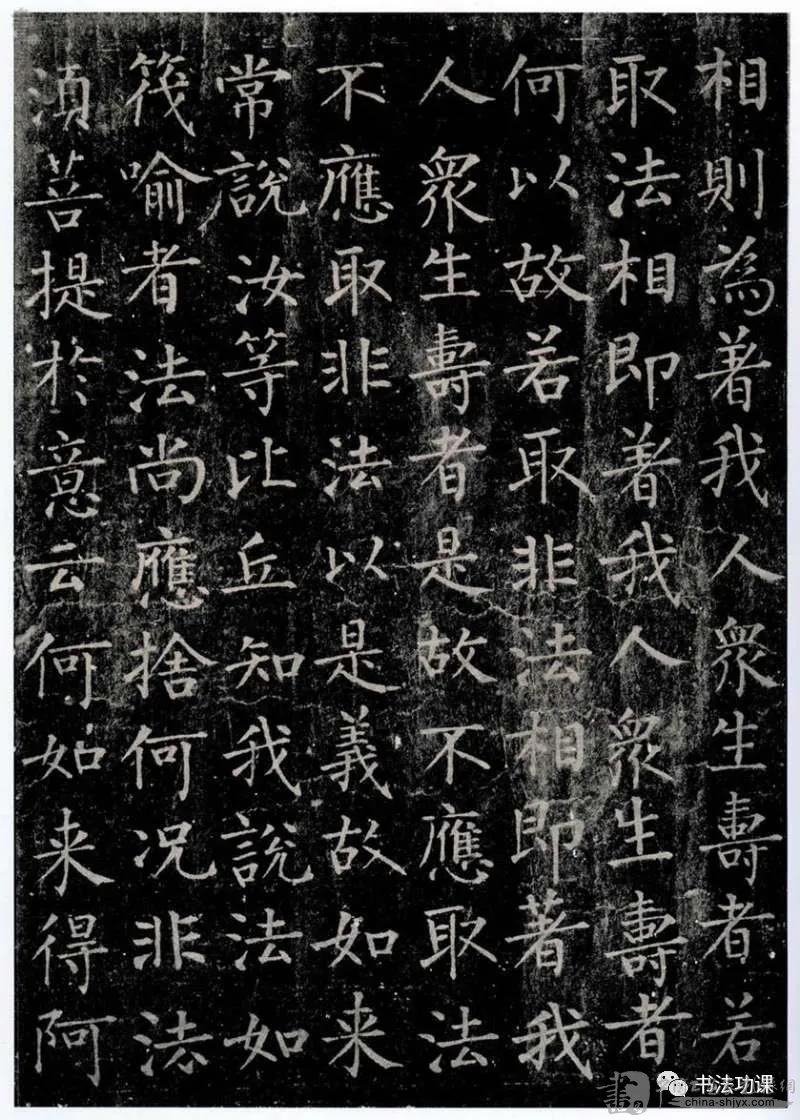 相則為著我人衆生壽者若
取法相即著我人衆生壽者
何以故若取非法相即著我
人衆生壽者是故不應取法
不應取非法以是義故如来
常說汝等比丘知我說法如
筏喻者法尚應捨何況非法
湏菩提於意云何如来得阿
书法功课
china-shiyx.com